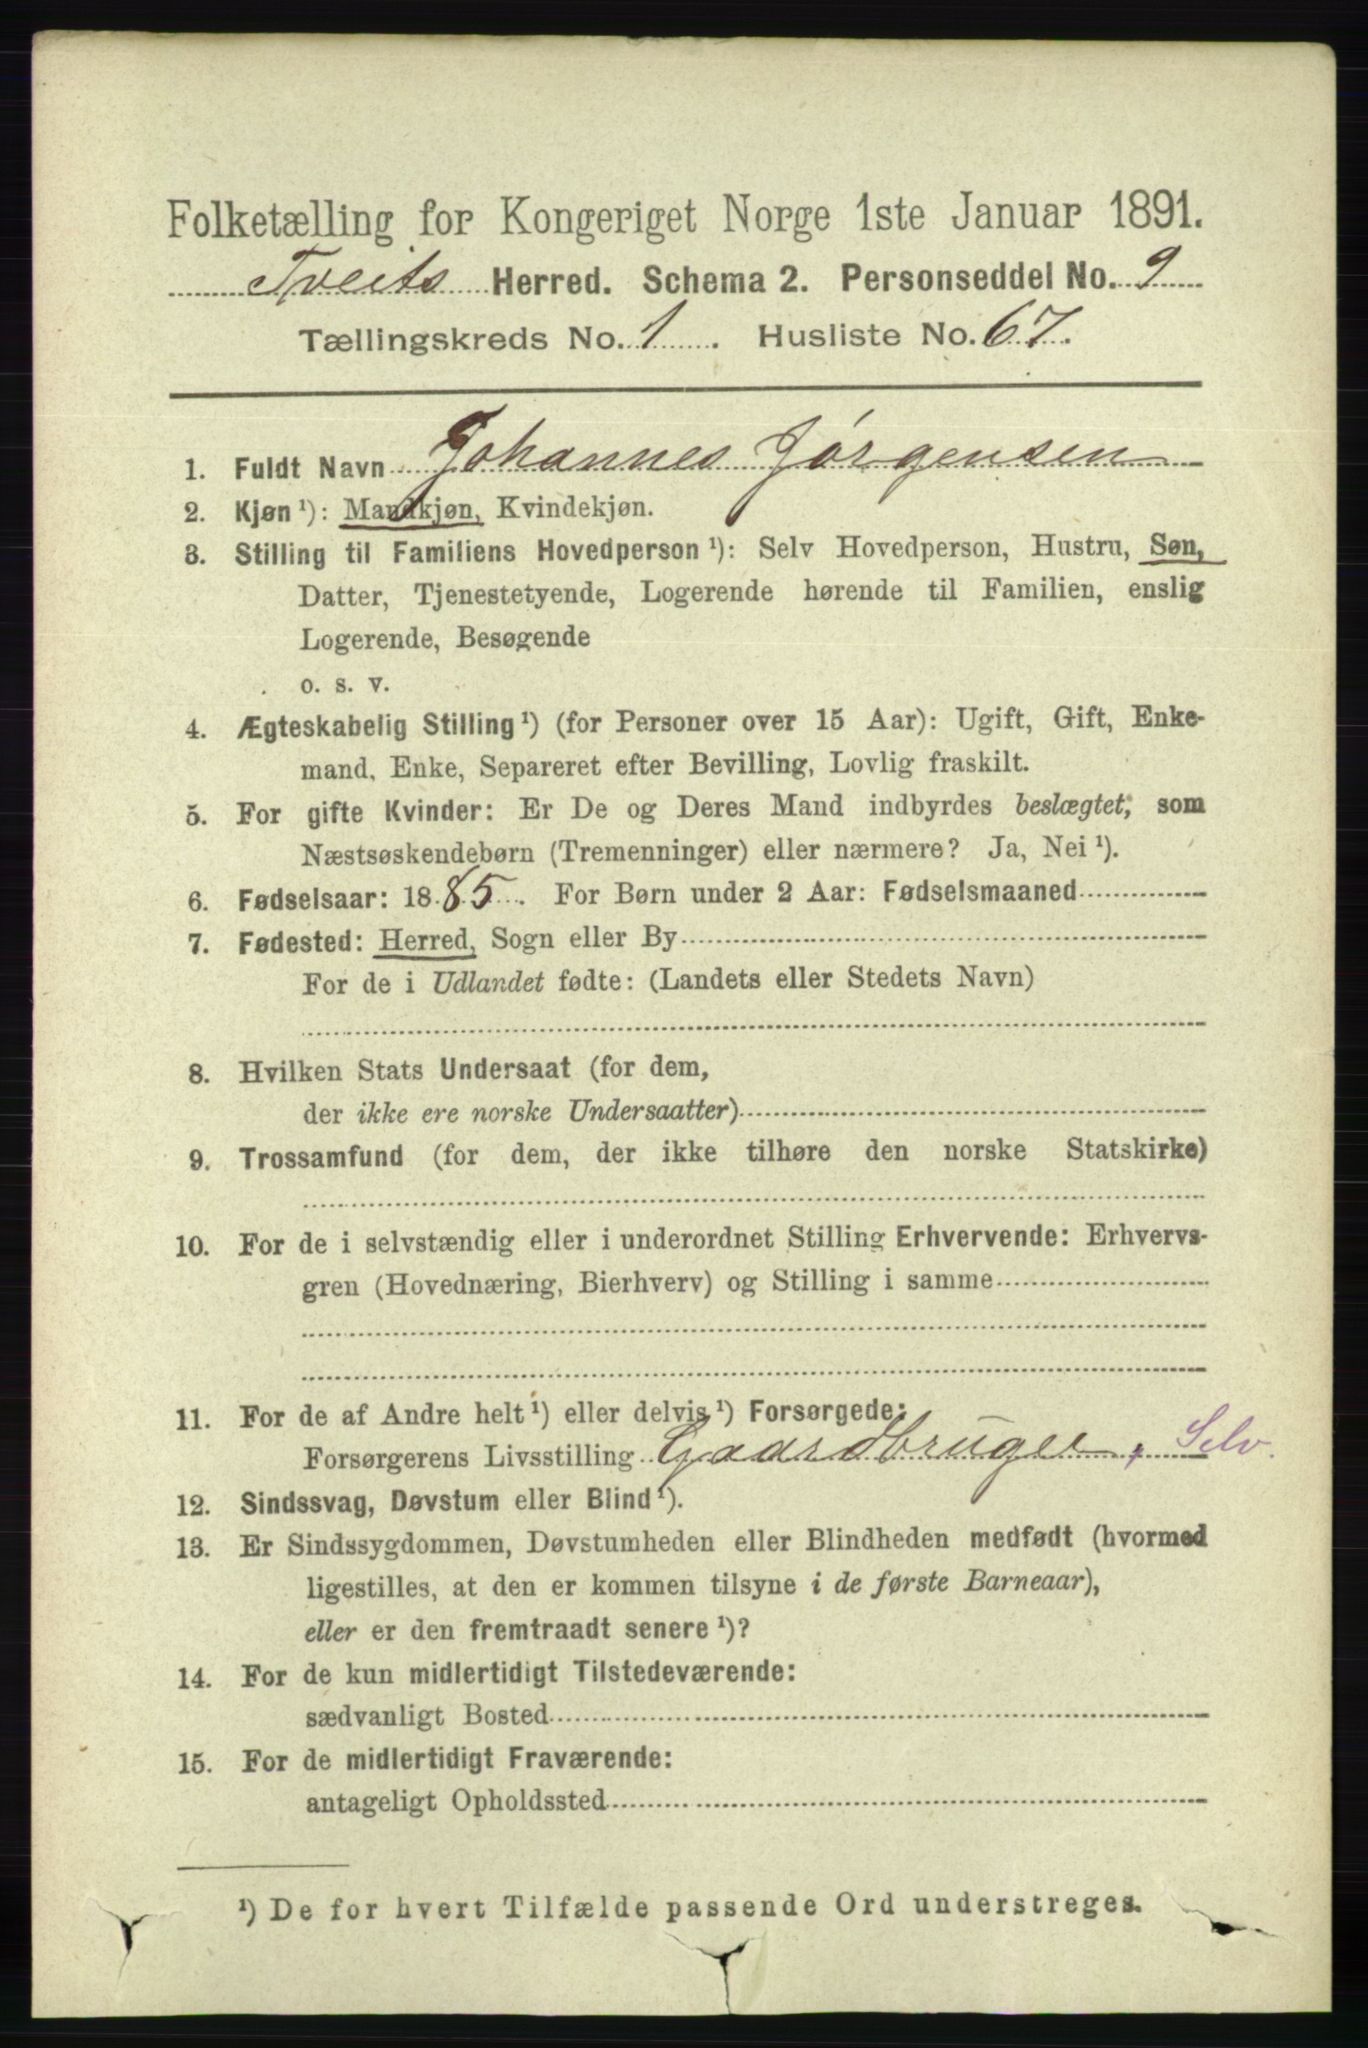 Folketælling for Kongeriget Norge 1ste Januar 1891.
Tveits Herred. Schema 2. Personseddel No. 9
Tællingskreds No. 1. Husliste No. 67.
1. Fuldt Navn Johannes Jørgensen
2. Kjøn¹): Mandkjøn, Kvindekjøn.
3. Stilling til Familiens Hovedperson¹): Selv Hovedperson, Hustru, Søn,
Datter, Tjenestetyende, Logerende hørende til Familien, enslig
Logerende, Besøgende
o. s. v.
4. Ægteskabelig Stilling¹) (for Personer over 15 Aar): Ugift, Gift, Enke-
mand, Enke, Separeret efter Bevilling, Lovlig fraskilt.
5. For gifte Kvinder: Er De og Deres Mand indbyrdes beslægtet, som
Næstsøskendebørn (Tremenninger) eller nærmere? Ja, Nei¹).
6. Fødselsaar: 1885. For Børn under 2 Aar: Fødselsmaaned
7. Fødested: Herred, Sogn eller By
For de i Udlandet fødte: (Landets eller Stedets Navn)
8. Hvilken Stats Undersaat (for dem,
der ikke ere norske Undersaatter)
9. Trossamfund (for dem, der ikke tilhøre den norske Statskirke)
10. For de i selvstændig eller i underordnet Stilling Erhvervende: Erhvervs-
gren (Hovednæring, Bierhverv) og Stilling i samme
11. For de af Andre helt¹) eller delvis¹) Forsørgede:
Forsørgerens Livsstilling Gaardbruger, Selv.
12. Sindssvag, Døvstum eller Blind¹).
13. Er Sindssygdommen, Døvstumheden eller Blindheden medfødt (hvormed
ligestilles, at den er kommen tilsyne i de første Barneaar),
eller er den fremtraadt senere¹)?
14. For de kun midlertidigt Tilstedeværende:
sædvanligt Bosted
15. For de midlertidigt Fraværende:
antageligt Opholdssted
¹) De for hvert Tilfælde passende Ord understreges.